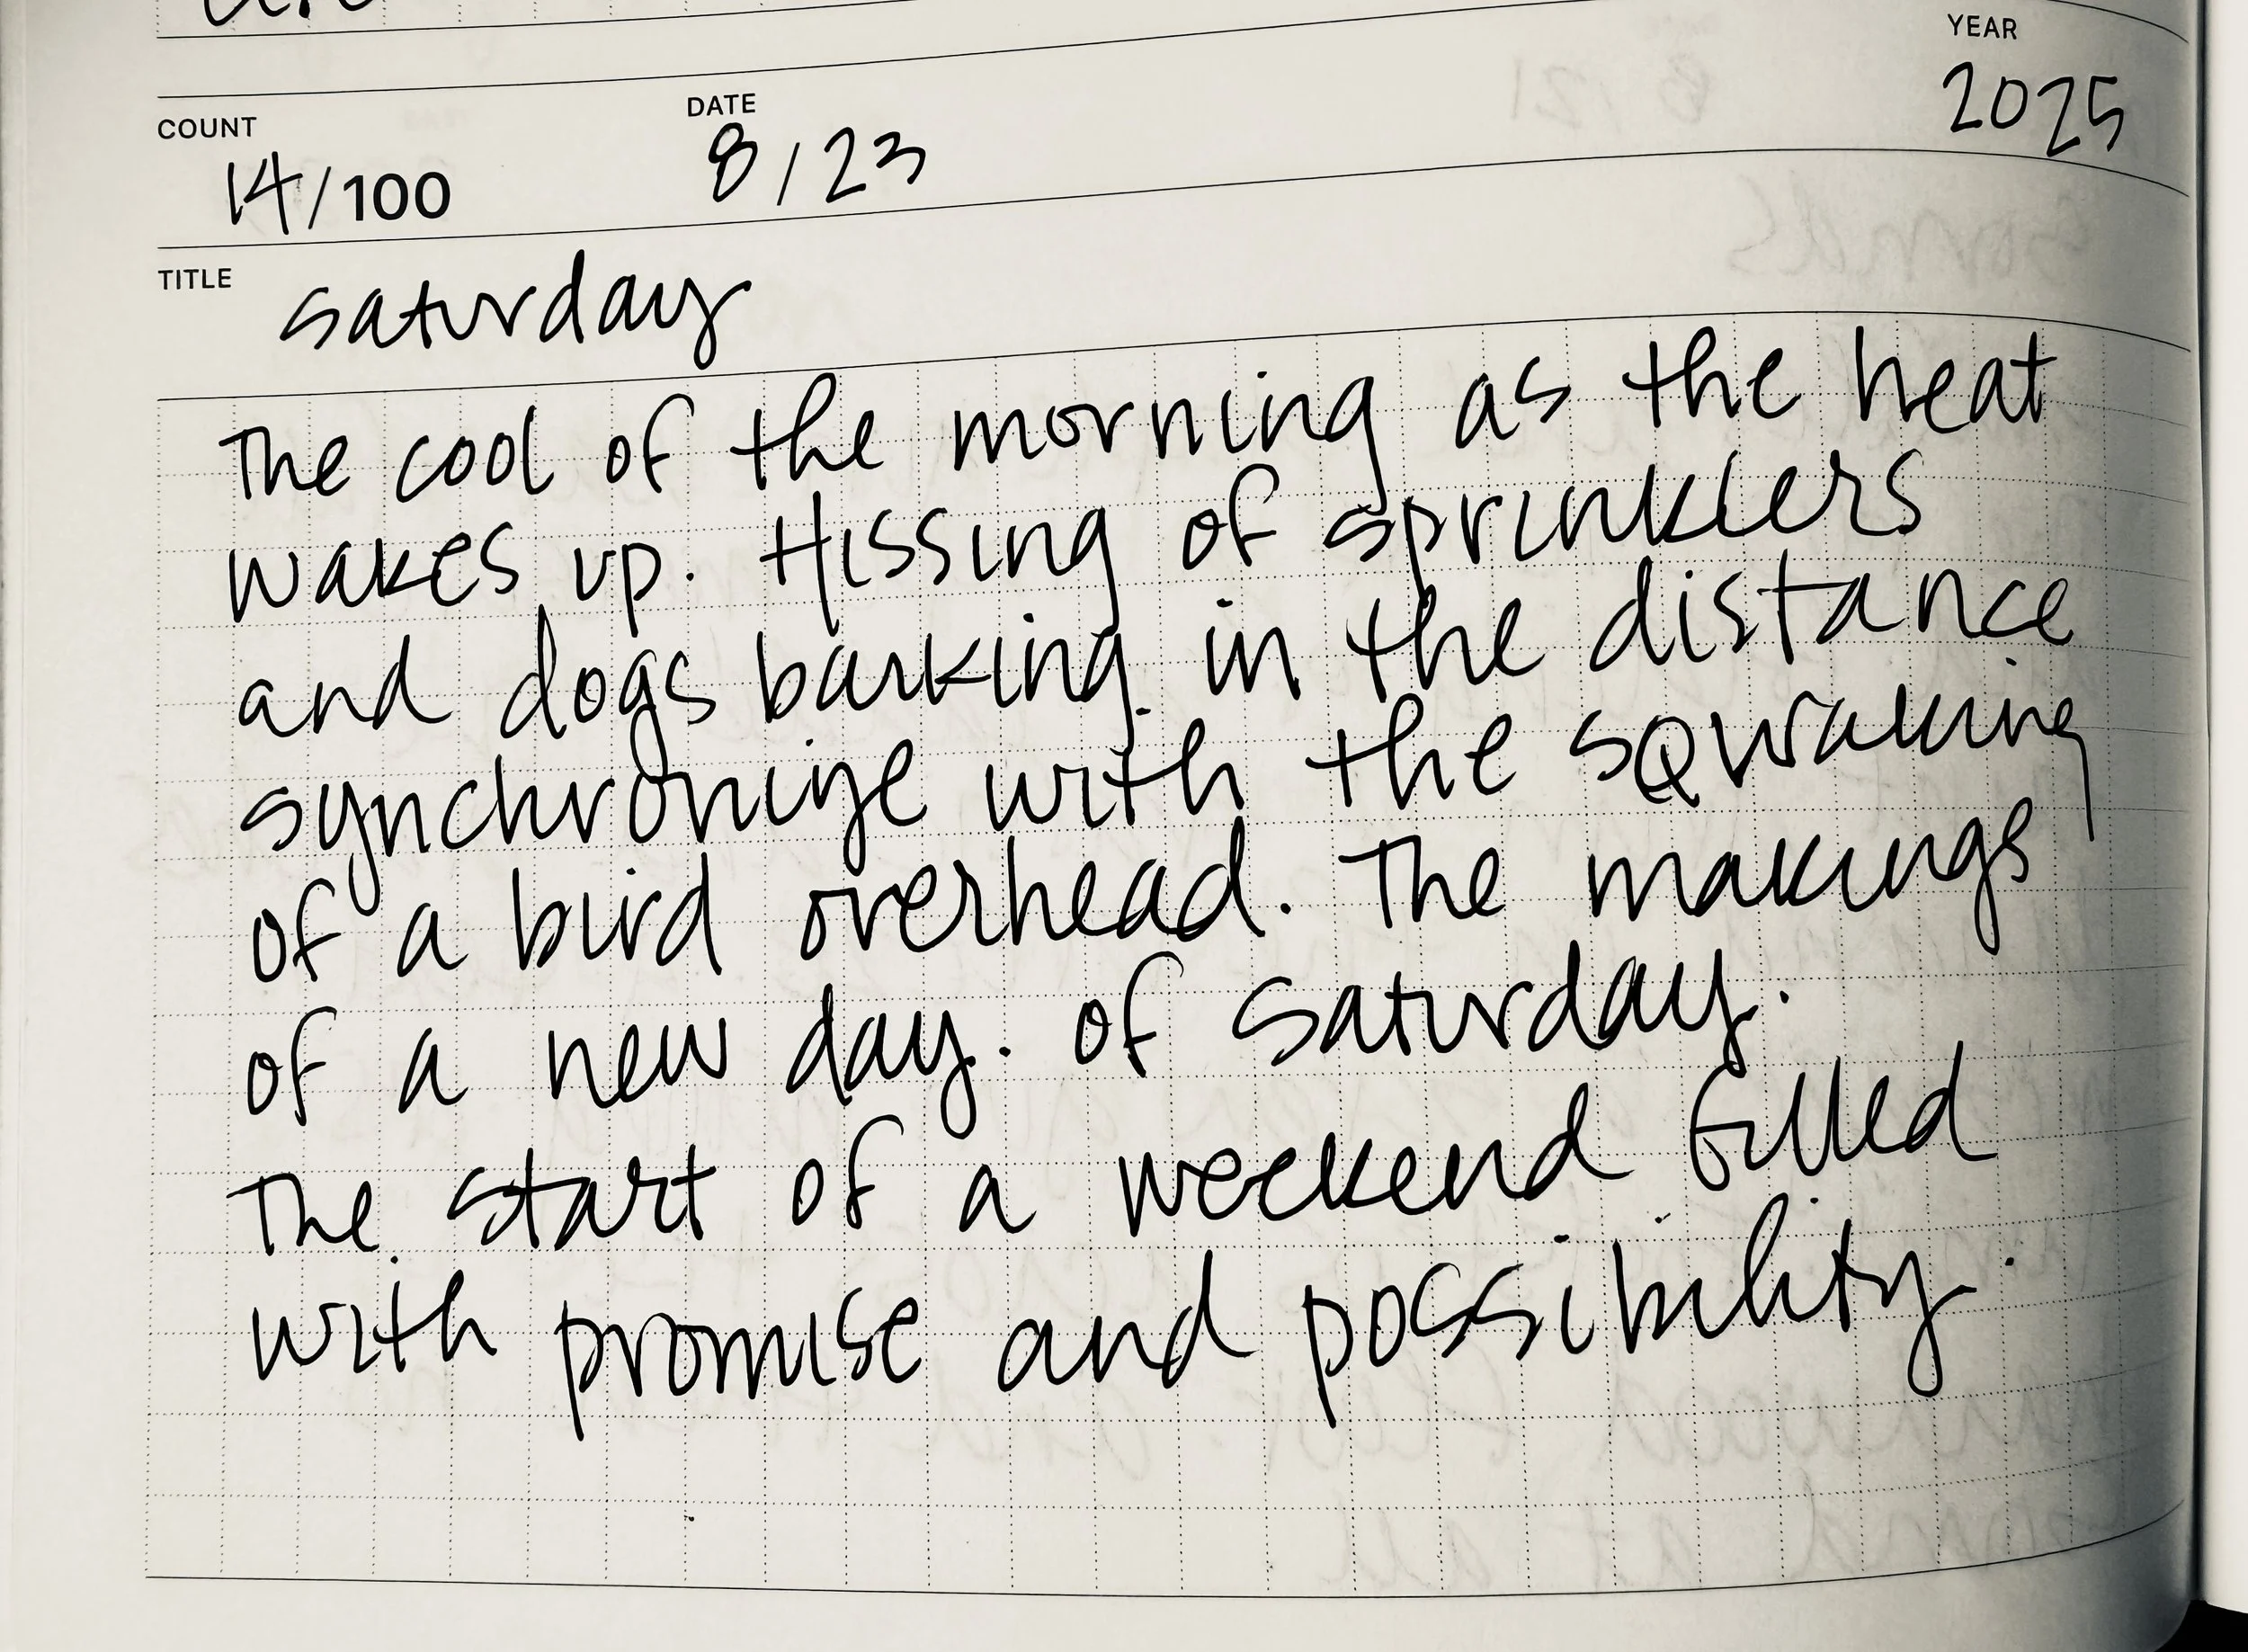 YEAR
2025
COUNT
DATE
14/100
8/23
TITLE
saturday
The cool of the morning as the heat
wakes up. Hissing of sprinklers
and dogs barking in the distance
synchronize with the sqwaking
of a bird overhead. The makings
of a new day. Of Saturday.
The start of a weekend filled
with promise and possibility.